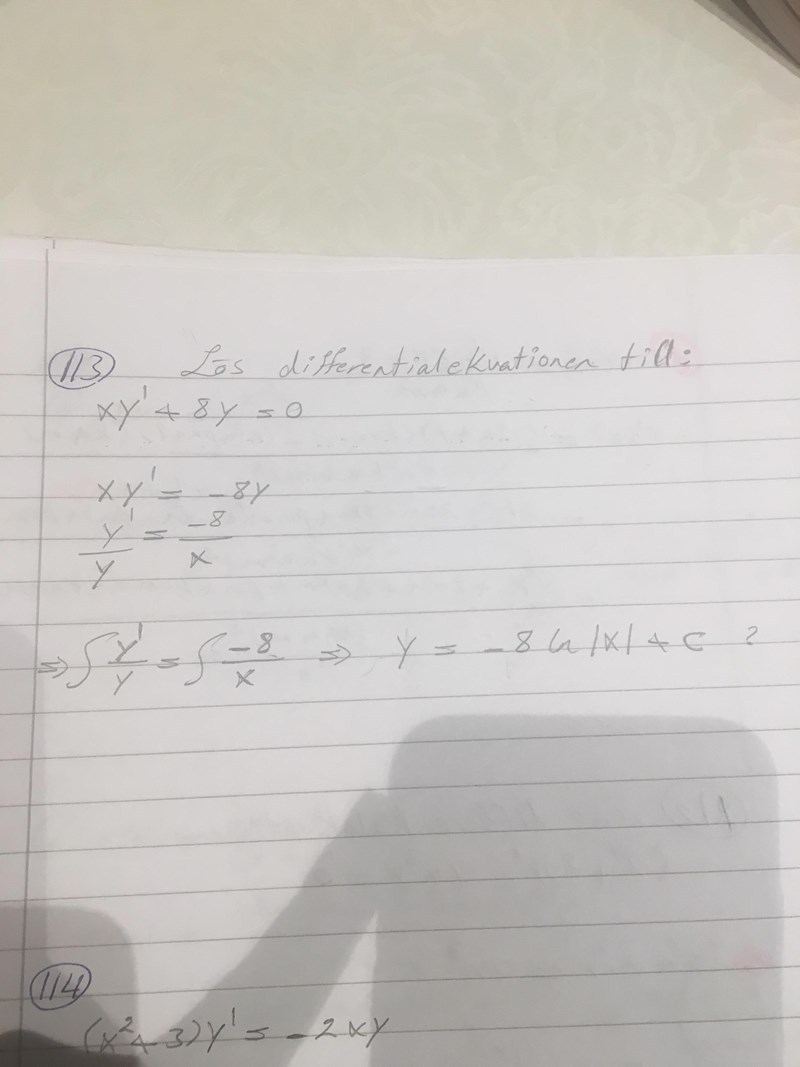 113 Lös differentialekvationen till:
xy' + 8y = 0
xy' = -8y
y'/y = -8/x
⇒ ∫ y'/y = ∫ -8/x ⇒ y = -8 ln |x| + C ?
114
(x² + 3)y' = -2xy